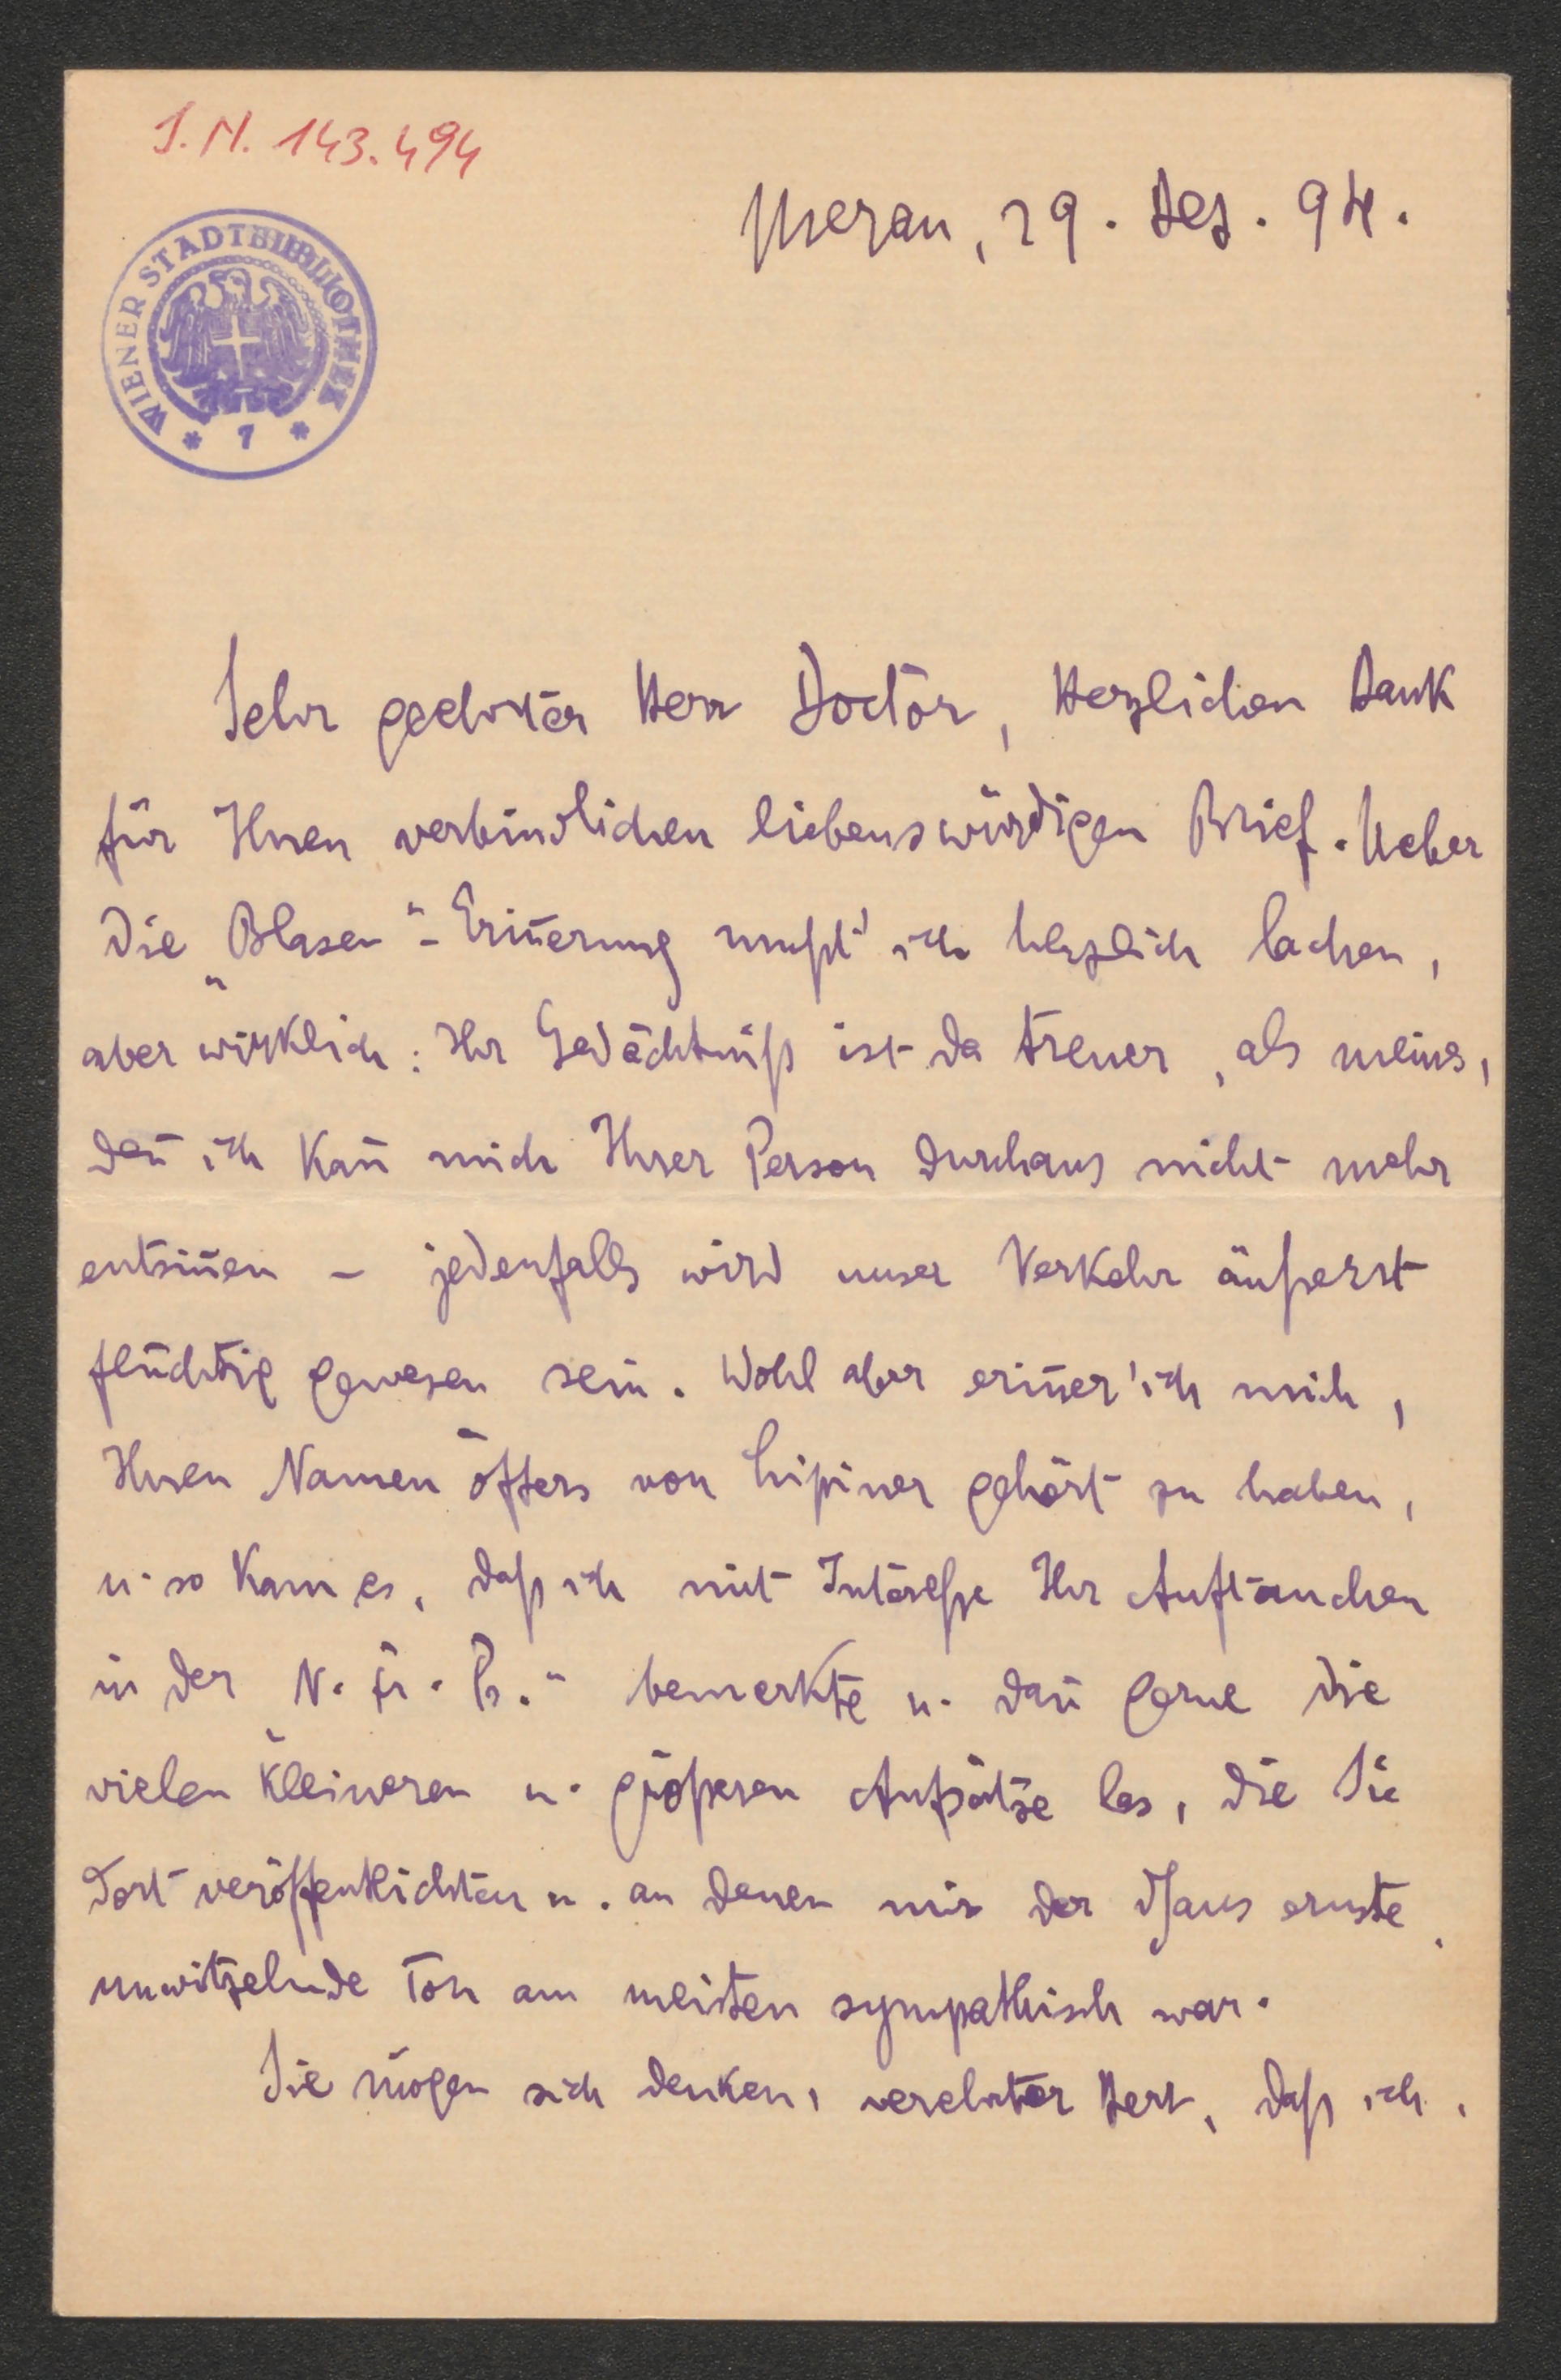 J.N. 143.494
WIENER STADTBIBLIOTHEK
* 7 *
Meran, 29. Dez. 94.
Sehr geehrter Herr Doctor, Herzlichen Dank
für Ihren verbindlichen liebenswürdigen Brief. Ueber
die „Blasen“-Erin̄erung mußt' ich herzlich lachen,
aber wirklich: Ihr Gedächtniß ist da treuer, als meins,
den̄ ich kan̄ mich Ihrer Person durchaus nicht mehr
entsin̄en – jedenfalls wird unser Verkehr äußerst
flüchtig gewesen sein. Wohl aber erin̄er' ich mich,
Ihren Namen öfters von Lipiner gehört zu haben,
u. so kam es, daß ich mit Interesse Ihr Auftauchen
in der „N. Fr. Pr.“ bemerkte u. dan̄ gerne die
vielen kleineren u. größeren Aufsätze las, die Sie
dort veröffentlichten u. an denen mir der ernste
unwitzelnde Ton am meisten sympathisch war.
Sie mögen sich denken, verehrter Herr, daß ich,